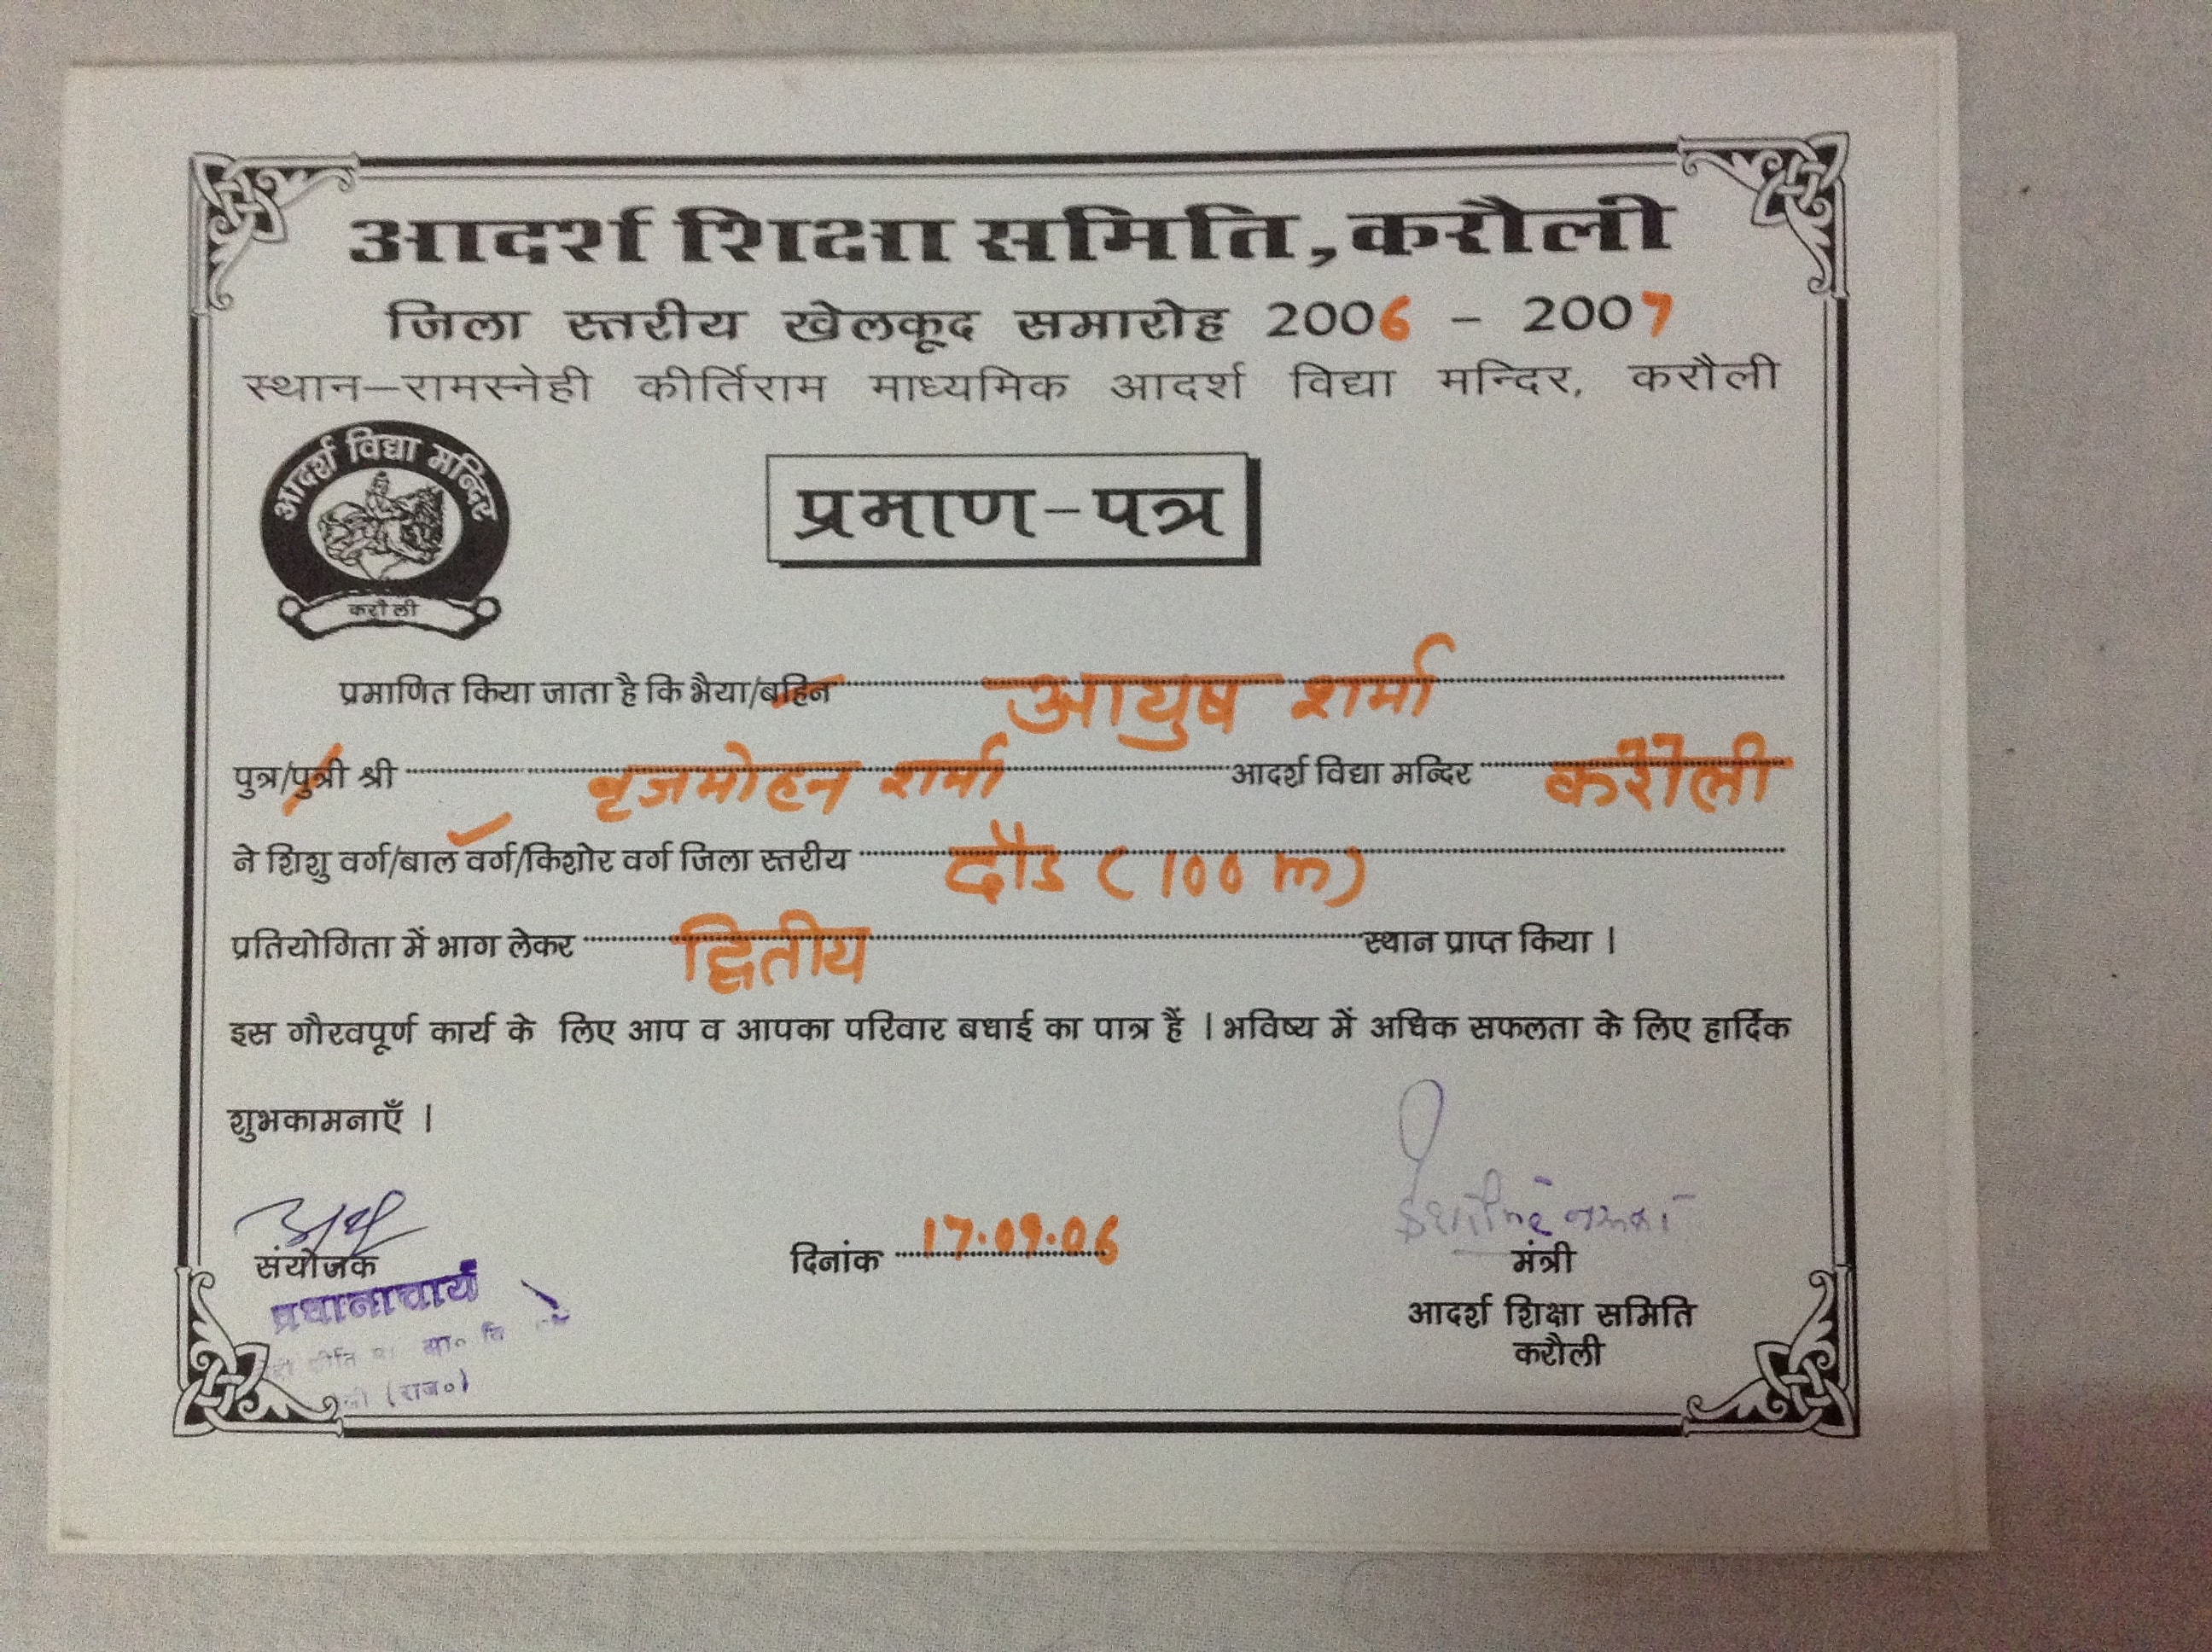 आदर्श शिक्षा समिति, करौली
जिला स्तरीय खेलकूद समारोह 2006 - 2007
स्थान–रामस्नेही कीर्तिराम माध्यमिक आदर्श विद्या मन्दिर, करौली
आदर्श विद्या मन्दिर
करौली
प्रमाण-पत्र
प्रमाणित किया जाता है कि भैया/बहिन आयुष शर्मा
पुत्र/पुत्री श्री बृजमोहन शर्मा आदर्श विद्या मन्दिर करौली
ने शिशु वर्ग/बाल वर्ग/किशोर वर्ग जिला स्तरीय दौड (100 m)
प्रतियोगिता में भाग लेकर द्वितीय स्थान प्राप्त किया ।
इस गौरवपूर्ण कार्य के लिए आप व आपका परिवार बधाई का पात्र हैं । भविष्य में अधिक सफलता के लिए हार्दिक
शुभकामनाएँ ।
संयोजक
प्रधानाचार्य
(राज०)
दिनांक 17.09.06
मंत्री
आदर्श शिक्षा समिति
करौली